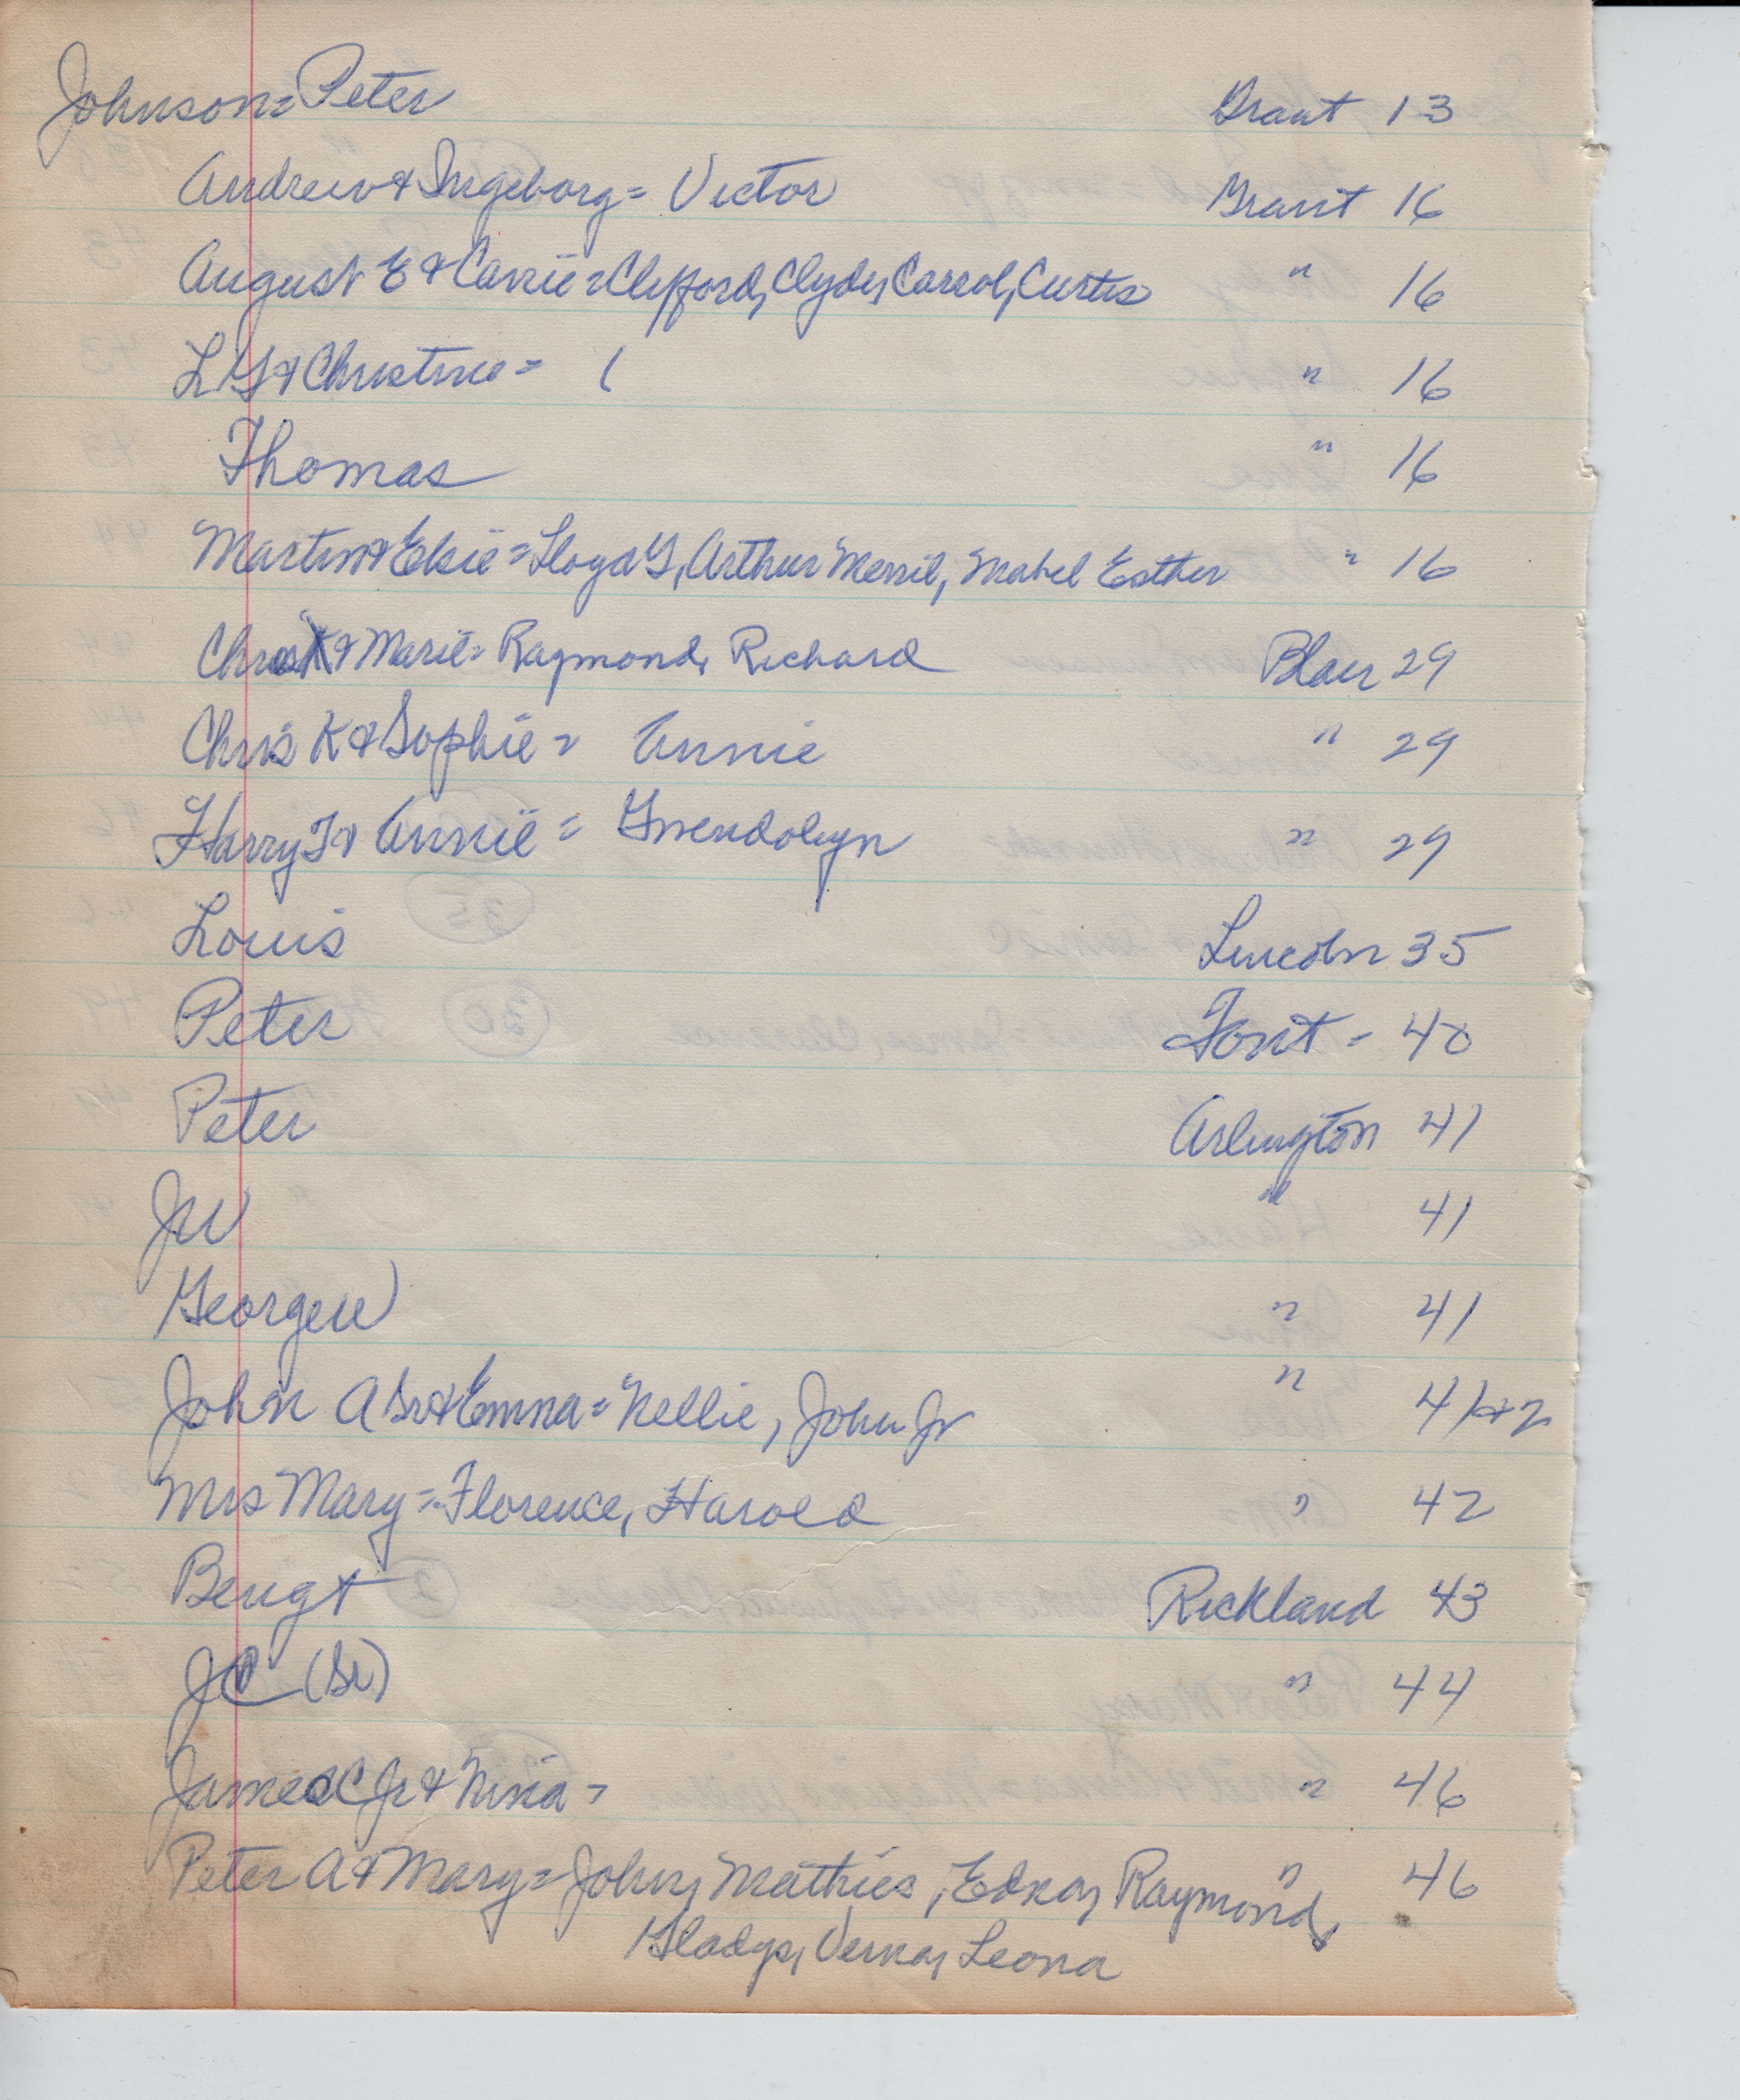 Johnson = Peter Grant 13
Andrew & Ingeborg = Victor Grant 16
August E & Carrie = Clifford, Clyde, Carrol, Curtis " 16
L G & Christine = ( " 16
Thomas " 16
Martin & Elsie = Lloyd G, Arthur Merril, Mabel Esther " 16
Chris & Marie = Raymond, Richard Blair 29
Chris K & Sophie = Annie " 29
Harry T & Annie = Gwendolyn " 29
Louis Lincoln 35
Peter Font - 40
Peter Arlington 41
JW " 41
George W " 41
John A Sr & Emma = Nellie, John Jr " 41+42
Mrs Mary = Florence, Harold " 42
Bengt Richland 43
JC (Sr) " 44
James C Jr & Nina = " 46
Peter A & Mary = John, Mathies, Edna, Raymond, " 46
Gladys, Verna, Leona